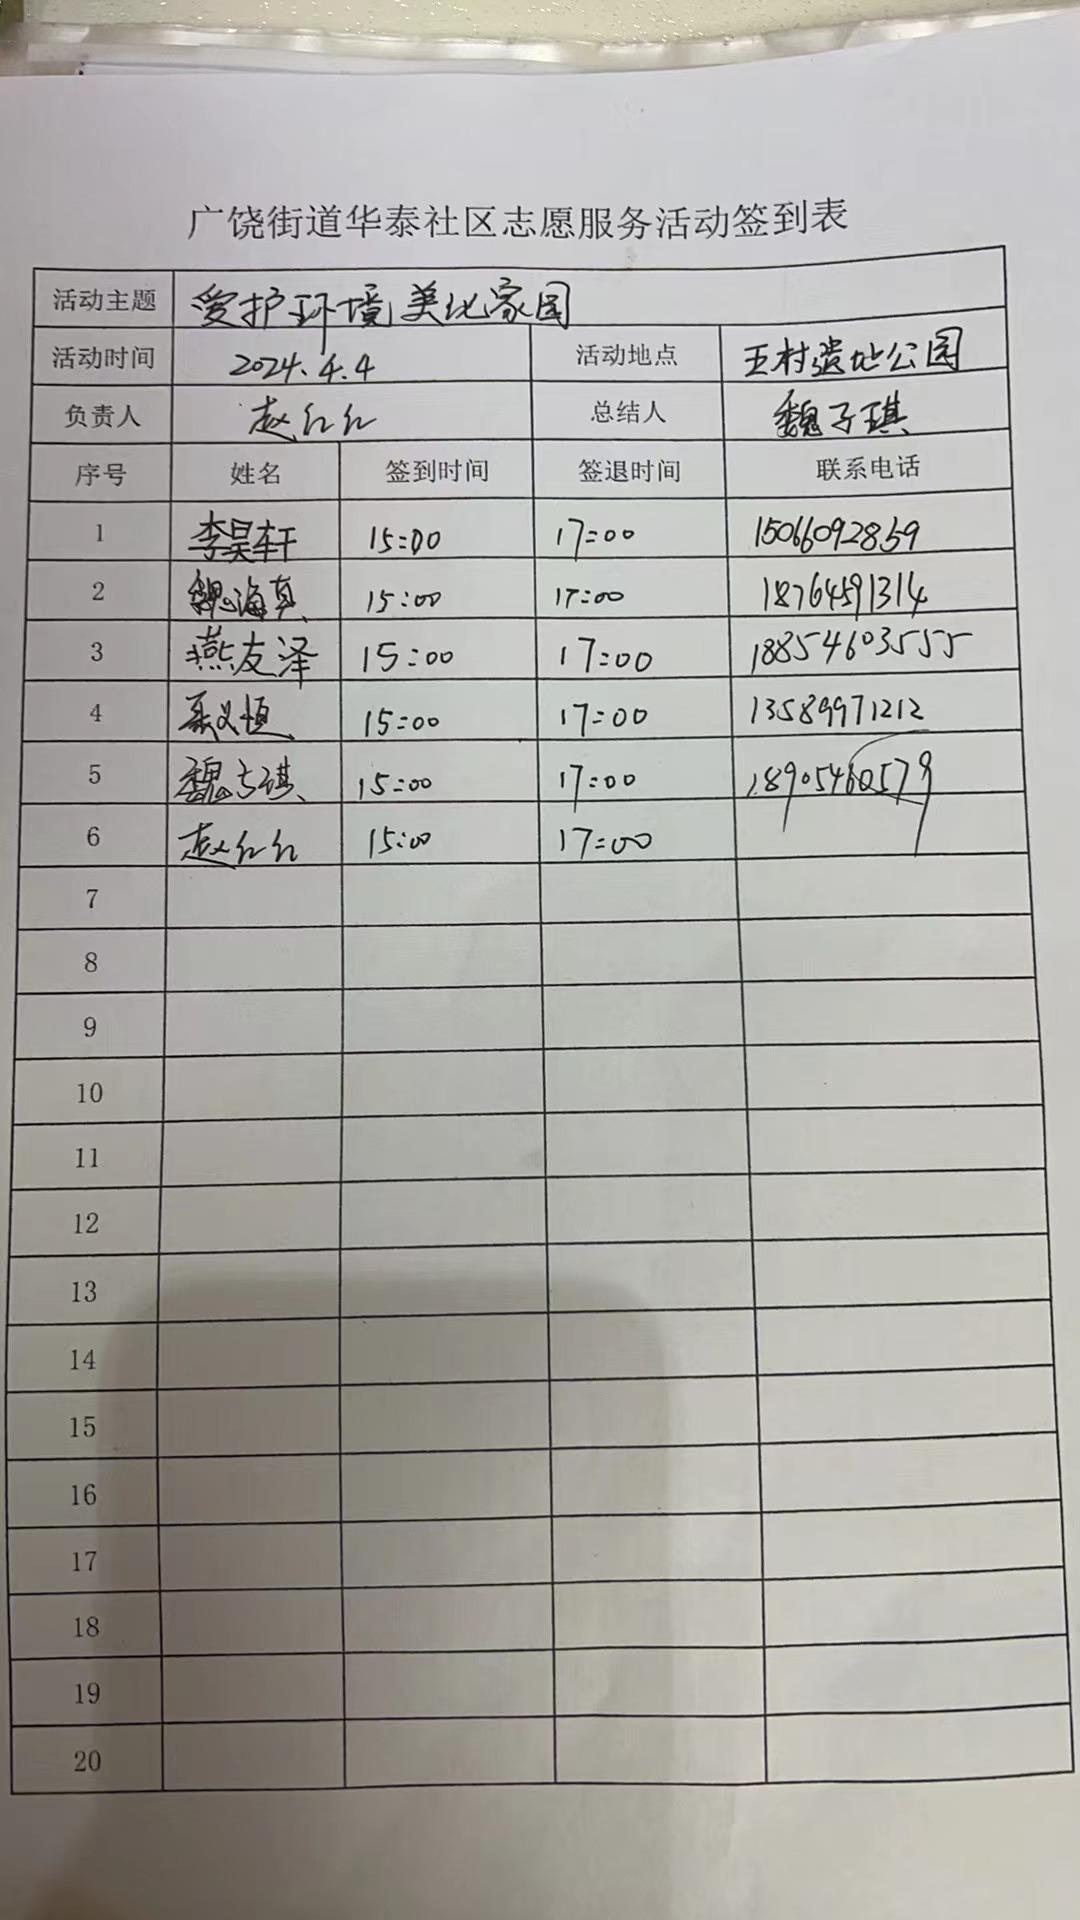 广饶街道华泰社区志愿服务活动签到表
活动主题 爱护环境 美化家园
活动时间 2024.4.4 活动地点 王村遗址公园
负责人 赵红红 总结人 魏子琪
序号 姓名 签到时间 签退时间 联系电话
1 李昊轩 15:00 17:00 15066092859
2 魏海真 15:00 17:00 18764591314
3 燕友泽 15:00 17:00 18854603555
4 义恒 15:00 17:00 13589971212
5 魏子琪 15:00 17:00 18905460579
6 赵红红 15:00 17:00
7
8
9
10
11
12
13
14
15
16
17
18
19
20